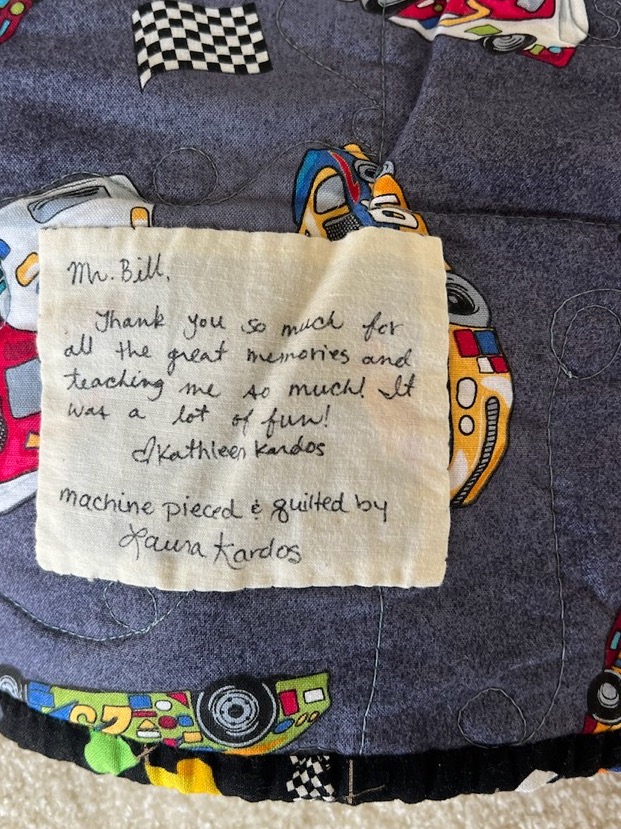 Mr. Bill,
Thank you so much for
all the great memories and
teaching me so much! It
was a lot of fun!
♡Kathleen Kardos
machine pieced & quilted by
Laura Kardos